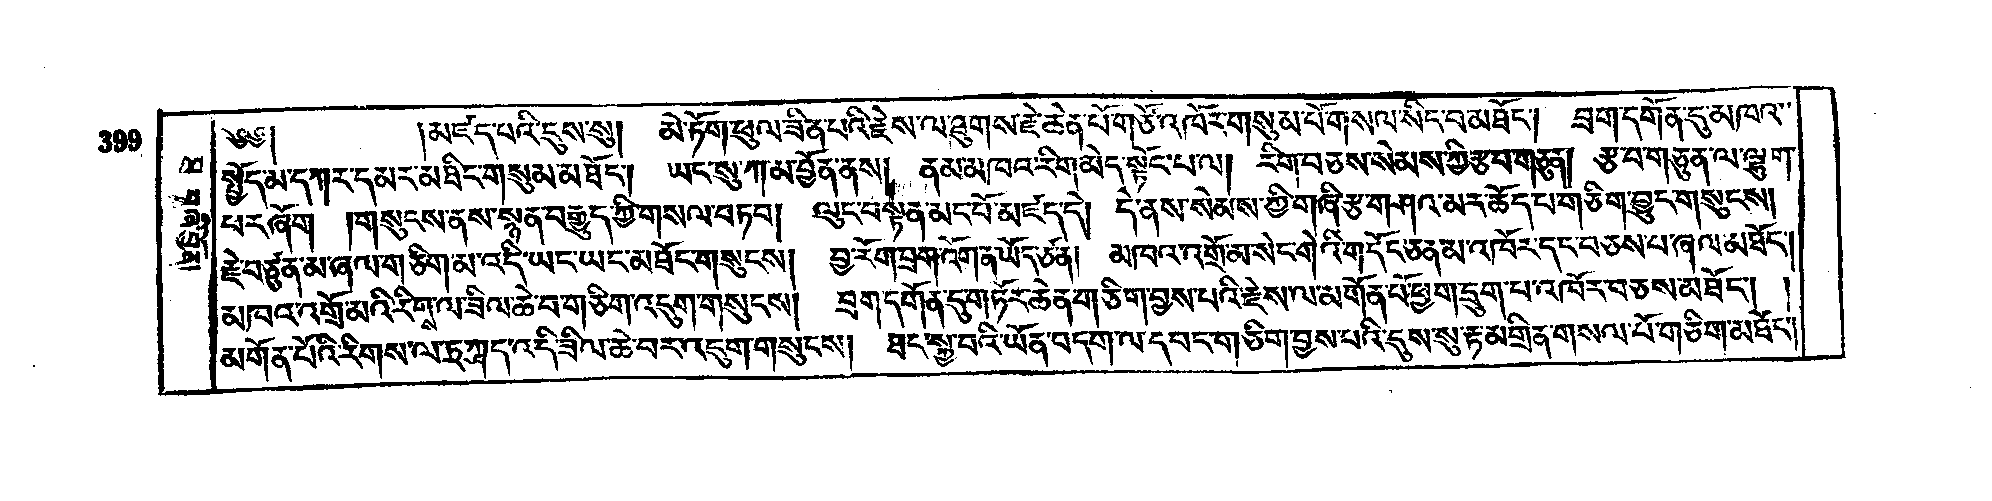 399
༄༅། །མཛད་པའི་དུས་སུ། མེ་ཏོག་ཕུལ་ཟིན་པའི་རྗེས་ལ་ཐུགས་རྗེ་ཆེན་པོ་གཙོ་འཁོར་གསུམ་པོ་གསལ་སིང་བ་མཐོང་། བྲག་དགོན་དུ་མཁའ་
སྤྱོད་མ་དཀར་དམར་མཐིང་གསུམ་མཐོང་། ཡང་སུ་ཀ་མ་བྱོན་ནས། ནམ་མཁའ་རིག་མེད་སྟོང་པ་ལ། རིག་བཅས་སེམས་ཀྱི་རྩ་བ་གཅུན། རྩ་བ་གཅུན་ལ་ལྷུག་
པར་ཞོག །གསུངས་ནས་སྙན་བརྒྱུད་ཀྱི་གསལ་བཏབ། ལུང་བསྟན་མང་པོ་མཛད་དེ། དེ་ནས་སེམས་ཀྱི་གཞི་རྩ་གཤའ་མར་ཆོད་པ་གཅིག་བྱུང་གསུངས།
རྗེ་བཙུན་མ་ཞལ་གཅིག་མ་འདི་ཡང་ཡང་མཐོང་གསུངས། བྱ་རོག་བྲག་འོག་ན་ཡོད་ཙན། མཁའ་འགྲོ་མ་སེང་གེའི་གདོང་ཅན་མ་འཁོར་དང་བཅས་པ་ཞལ་མཐོང་།
མཁའ་འགྲོ་མའི་རིགས་ལ་ཟིལ་ཆེ་བ་གཅིག་འདུག་གསུངས། བྲག་དགོན་དུ་གཏོར་ཆེན་གཅིག་བྱས་པའི་རྗེས་ལ་མགོན་པོ་ཕྱག་དྲུག་པ་འཁོར་བཅས་མཐོང་། །
མགོན་པོའི་རིགས་ལ་ཏྲ་ཀྵད་འདི་ཟིལ་ཆེ་བར་འདུག་གསུངས། ཐང་སྐྱ་བའི་ཡོན་བདག་ལ་དབང་གཅིག་བྱས་པའི་དུས་སུ་རྟ་མགྲིན་གསལ་པོ་གཅིག་མཐོང་།